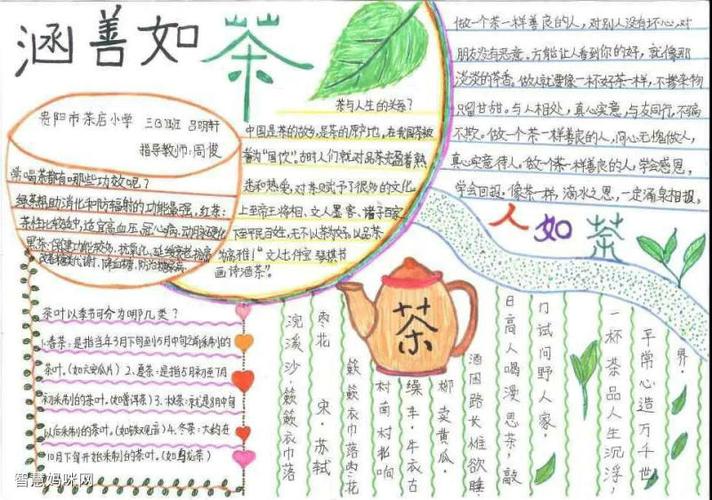 涵善如茶
贵阳市茶店小学 三(3)班 吕明轩
指导教师:周俊
常喝茶都有哪些功效呢?
绿茶帮助消化和防辐射的功能最强,红茶:
茶性比较适中,适宜高血压、冠心病、动脉硬化
茶叶以季节可分为哪几类?
1、春茶:是指当年3月下旬到5月中旬之前采制的
茶叶。(如六安瓜片) 2、夏茶:是指5月初至7月
初采制的茶叶。(如普洱茶) 3、秋茶:就是8月中旬
以后采制的茶叶。 4、冬茶:大约在
10月下旬开始采制的茶叶。(如乌龙茶)
茶与人生的关系?
中国是茶的故乡,是茶的原产地,在我国茶被
誉为"国饮"。古时人们就对品茶充盈着熟
悉和热爱,对茶赋予了很多的文化。
上至帝王将相、文人墨客、诸子百家
下至平民百姓,无不以茶为好,以品茶
为高雅!"文人七件宝 琴棋书
画诗酒茶"。
做一个茶一样善良的人,对别人没有坏心,对
朋友没有恶意。方能让人看到你的好,就像那
淡淡的茶香。做人就要像一杯好茶一样,不掺杂物
只留甘甜。与人相处,真心实意,与友同行,不骗
不欺。做一个茶一样善良的人,问心无愧做人,
真心实意待人。做一个茶一样善良的人,学会感恩,
学会回报。像茶一样,滴水之恩,一定涌泉相报。
人如茶
茶
界
平常心造万千世
一杯茶品人生沉浮,
门试问野人家。
日高人喝漫思茶,敲
酒困路长惟欲睡
柳卖黄瓜。
缲车。牛衣古
村南村北响
簌簌衣巾落枣花
枣花 宋·苏轼
浣溪沙·簌簌衣巾落
智慧妈咪网